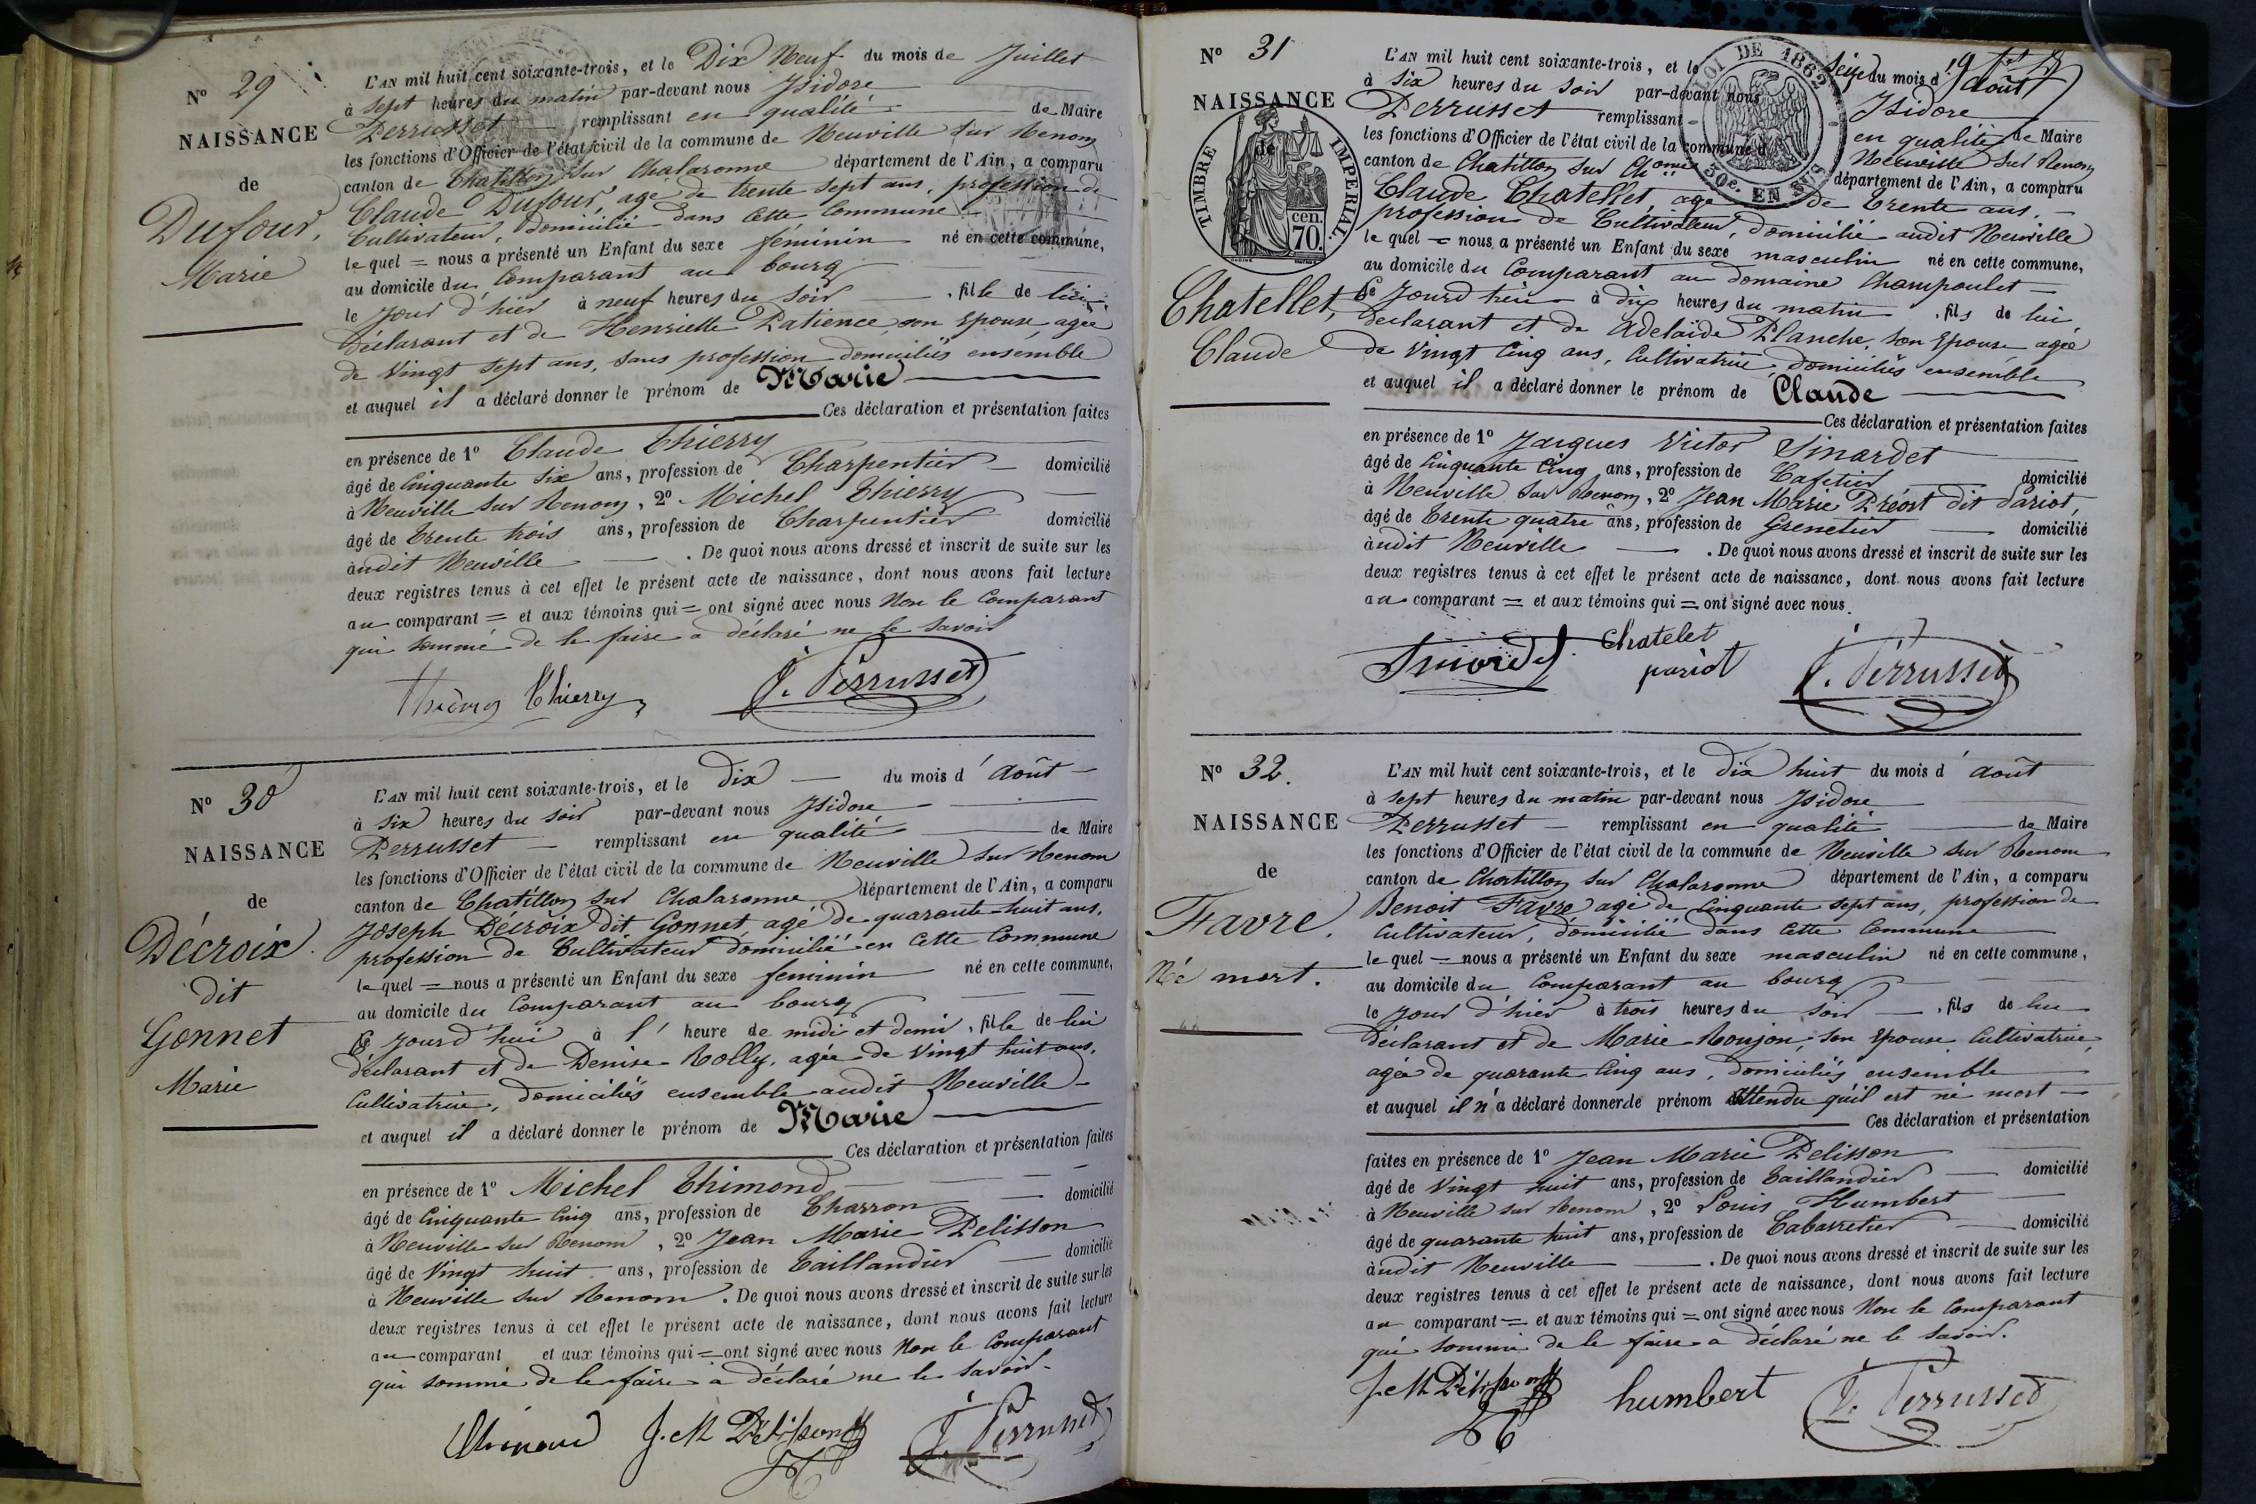 N° 29
NAISSANCE
de
Dufour,
Marie
L'AN mil huit cent soixante-trois, et le Dix Neuf du mois de Juillet
à sept heures du matin par-devant nous Isidore
Perrusset remplissant en qualité de Maire
les fonctions d'Officier de l'état civil de la commune de Neuville sur Renom
canton de Chatillon sur Chalaronne département de l'Ain, a comparu
Claude Dufour, agé de trente sept ans, profession de
Cultivateur, Domicilié dans cette Commune
le quel = nous a présenté un Enfant du sexe féminin né en cette commune,
au domicile du Comparant au bourg
le jour d'hier à neuf heures du soir, fille de lui
déclarant et de Henriette Patience, son Epouse agée
de Vingt sept ans, sans profession domiciliés ensemble
et auquel il a déclaré donner le prénom de Marie
Ces déclaration et présentation faites
en présence de 1° Claude Thierry
âgé de Cinquante six ans, profession de Charpentier domicilié
à Neuville sur Renom, 2° Michel Thierry
âgé de trente trois ans, profession de Charpentier domicilié
à udit Neuville. De quoi nous avons dressé et inscrit de suite sur les
deux registres tenus à cet effet le présent acte de naissance, dont nous avons fait lecture
au comparant = et aux témoins qui = ont signé avec nous Non le Comparant
qui sommé de le faire a déclaré ne le savoir
Thierry Thierry J. Perrusset
N° 30
NAISSANCE
de
Décroix
dit
Gonnet
Marie
L'AN mil huit cent soixante-trois, et le dix du mois d'août
à six heures du soir par-devant nous Isidore
Perrusset remplissant en qualité de Maire
les fonctions d'Officier de l'état civil de la commune de Neuville sur Renom
canton de Chatillon sur Chalaronne département de l'Ain, a comparu
Joseph Décroix dit Gonnet agé de quarante huit ans,
profession de Cultivateur domicilié en cette Commune
le quel = nous a présenté un Enfant du sexe feminin né en cette commune,
au domicile du Comparant au bourg
Ce jourd'hui à l'heure de midi et demi, fille de lui
déclarant et de Denise Rolly, agée de Vingt huit ans,
Cultivatrice, domiciliés ensemble audit Neuville
et auquel il a déclaré donner le prénom de Marie
Ces déclaration et présentation faites
en présence de 1° Michel Thimond
âgé de Cinquante cinq ans, profession de Charron domicilié
à Neuville sur Renom, 2° Jean Marie Pelisson
âgé de Vingt huit ans, profession de Taillandier domicilié
à Neuville sur Renom. De quoi nous avons dressé et inscrit de suite sur les
deux registres tenus à cet effet le présent acte de naissance, dont nous avons fait lecture
au comparant et aux témoins qui = ont signé avec nous Non le Comparant
qui sommé de le faire a déclaré ne le savoir
Thimond J. M Pélisson J. Perrusset
N° 31
NAISSANCE
de
TIMBRE IMPERIAL
cen.
70.
LOI DE 1862
50c. EN SUS
Chatellet,
Claude
L'AN mil huit cent soixante-trois, et le Seize du mois d'août
à six heures du soir par-devant nous Isidore
Perrusset remplissant en qualité de Maire
les fonctions d'Officier de l'état civil de la commune d Neuville sur Renom
canton de Chatillon sur Ch onne département de l'Ain, a comparu
Claude Chatellet, agé de trente ans,
profession de Cultivateur, domicilié audit Neuville
le quel = nous a présenté un Enfant du sexe masculin né en cette commune,
au domicile du Comparant au domaine Champoulet
Ce jourd'hui à dix heures du matin, fils de lui
déclarant et de Adelaïde Planche, son Epouse agée
de Vingt cinq ans, Cultivatrice, domiciliés ensemble
et auquel il a déclaré donner le prénom de Claude
Ces déclaration et présentation faites
en présence de 1° Jacques Victor Sinardet
âgé de Cinquante cinq ans, profession de Cafetier domicilié
à Neuville sur Renom, 2° Jean Marie Préost dit Pariot,
âgé de trente quatre ans, profession de Grenetier domicilié
à udit Neuville. De quoi nous avons dressé et inscrit de suite sur les
deux registres tenus à cet effet le présent acte de naissance, dont nous avons fait lecture
au comparant = et aux témoins qui = ont signé avec nous.
Sinardet Chatelet
pariot J. Perrusset
N° 32.
NAISSANCE
de
Favre.
Né mort.
L'AN mil huit cent soixante-trois, et le dix huit du mois d'août
à sept heures du matin par-devant nous Isidore
Perrusset remplissant en qualité de Maire
les fonctions d'Officier de l'état civil de la commune de Neuville sur Renom
canton de Chatillon sur Chalaronne département de l'Ain, a comparu
Benoit Favre agé de Cinquante sept ans, profession de
Cultivateur, domicilié dans cette Commune
le quel = nous a présenté un Enfant du sexe masculin né en cette commune,
au domicile du Comparant au bourg
le jour d'hier à trois heures du soir, fils de lui
déclarant et de Marie Ronjon, son Epouse Cultivatrice,
agée de quarante cinq ans, domiciliés ensemble
et auquel il n'a déclaré donner de prénom attendu qu'il est né mort
Ces déclaration et présentation
faites en présence de 1° Jean Marie Pelisson
âgé de Vingt huit ans, profession de Taillandier domicilié
à Neuville sur Renom, 2° Louis Humbert
âgé de quarante huit ans, profession de Cabaretier domicilié
à udit Neuville. De quoi nous avons dressé et inscrit de suite sur les
deux registres tenus à cet effet le présent acte de naissance, dont nous avons fait lecture
au comparant = et aux témoins qui = ont signé avec nous Non le Comparant
qui sommé de le faire a déclaré ne le savoir.
J. M Pélisson humbert J. Perrusset